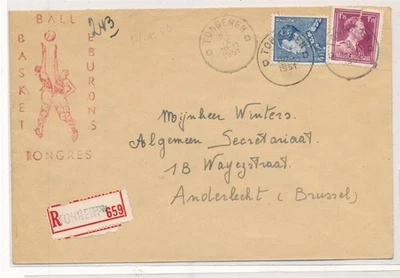 BALL
EBURONS
BASKET
TONGRES
243
TONGEREN
1951
TONGEREN
1951
Mijnheer Winters.
Algemeen Secretariaat.
1B Wayezstraat.
Anderlecht (Brussel)
R TONGEREN 659